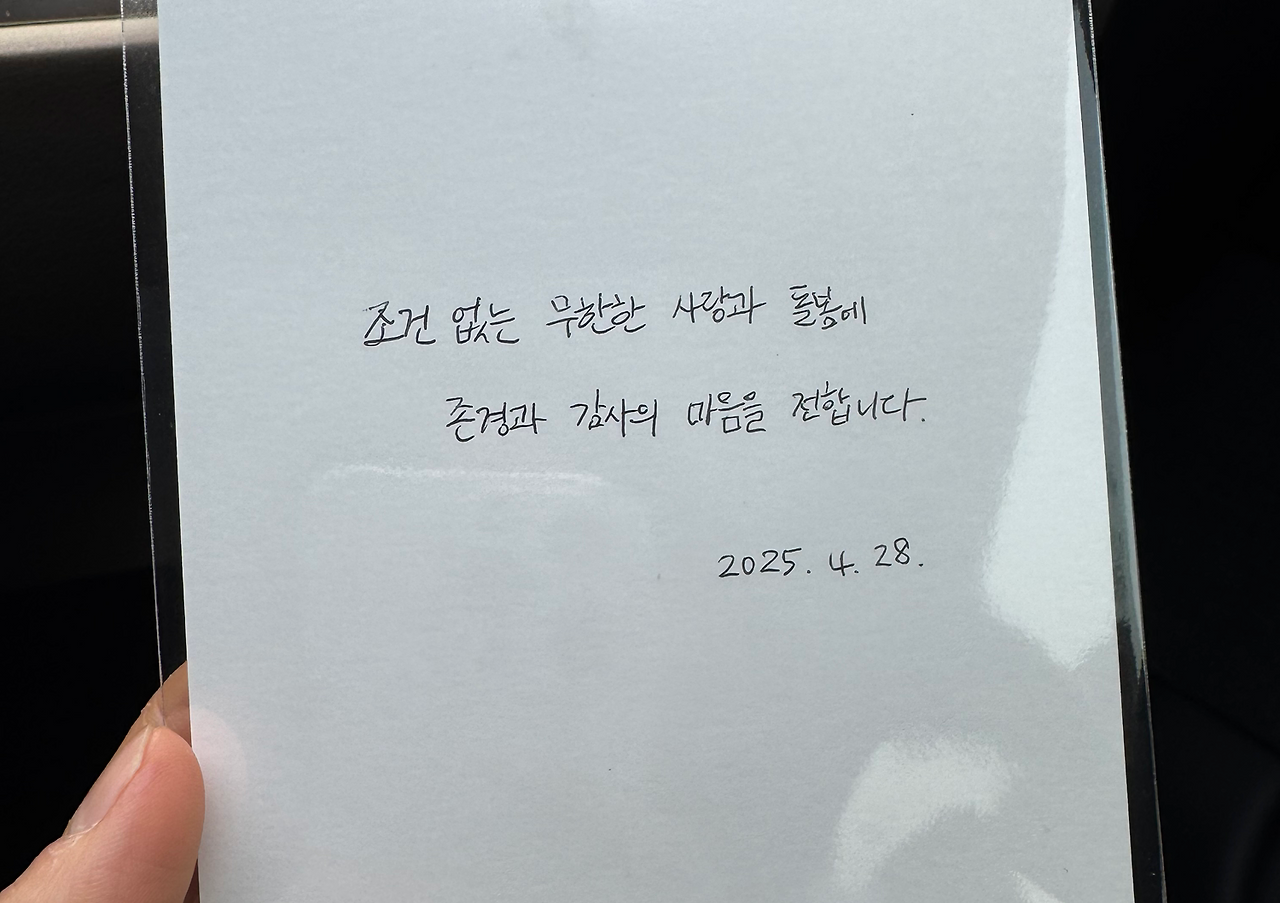 조건 없는 무한한 사랑과 돌봄에
존경과 감사의 마음을 전합니다.
2025. 4. 28.